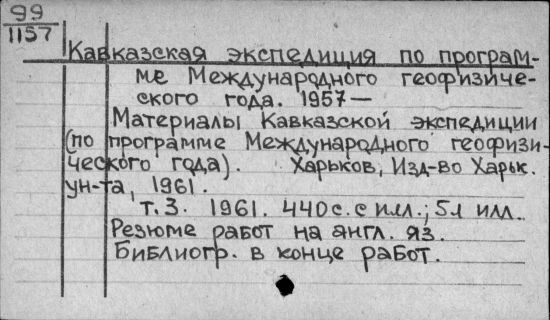 99
1157
Кавказская экспедиция по програм-
ме Международного геофизиче-
ского года. 1957—
Материалы Кавказской экспедиции
(по программе Международного геофизи-
ческого года). Харьков, Изд-во Харьк.
ун-та, 1961.
т.3. 1961. 440с. с илл.; 5л илл.
Резюме работ на англ. яз.
Библиогр. в конце работ.